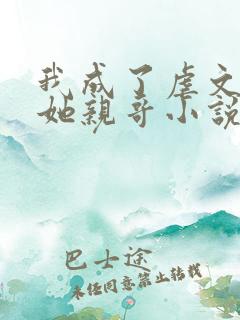 我成了虐文
她親哥小説
巴士途
未经同意禁止转载